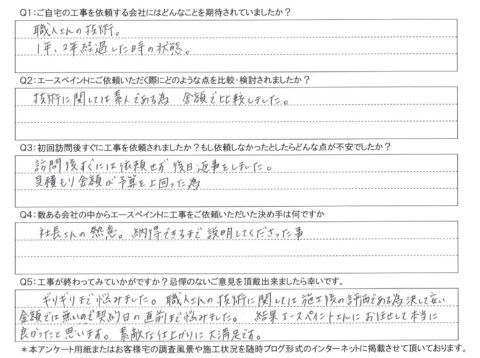 Q1:ご自宅の工事を依頼する会社にはどんなことを期待されていましたか?
職人さんの技術。
1年、2年経過した時の状態。
Q2:エースペイントにご依頼いただく際にどのような点を比較・検討されましたか?
技術に関しては素人である為 金額で比較しました。
Q3:初回訪問後すぐに工事を依頼されましたか?もし依頼しなかったとしたらどんな点が不安でしたか?
訪問後すぐには依頼せず後日返事をしました。
見積もり金額が予算を上回った為
Q4:数ある会社の中からエースペイントに工事をご依頼いただいた決め手は何ですか
社長さんの熱意。納得できるまで説明してくださった事
Q5:工事が終わってみていかがですか?忌憚のないご意見を頂戴出来ましたら幸いです。
ギリギリまで悩みました。職人さんの技術に関しては施工後の評価である為決して安い
金額では無いので契約日の直前まで悩みました。結果エースペイントさんにお任せして本当に
良かったと思います。素敵な仕上がりに大満足です。
*本アンケート用紙またはお客様宅の調査風景や施工状況を随時ブログ形式のインターネットに掲載させて頂いております。